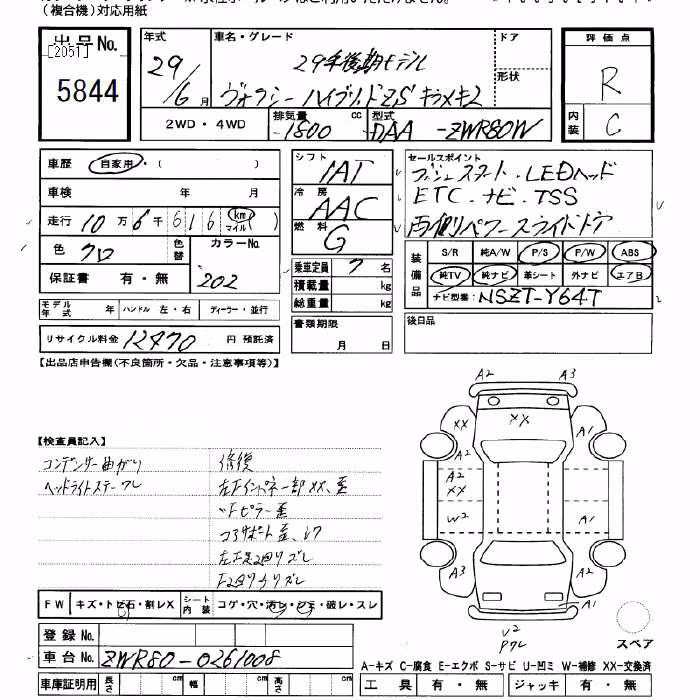 （複合機）対応用紙
出品No.
[2051]
5844
年式
29年
6月
車名・グレード
29年後期モデル
ヴォクシー ハイブリッドZS キラメキ2
ドア
形状
2WD・4WD
排気量
1800 cc
型式
DAA -ZWR80W
評価点
R
内装
C
車歴 自家用・( )
車検 年 月
走行 10万6千616 km マイル( )
色 クロ
色替
カラーNo.
202
保証書 有・無
モデル年式 年
ハンドル 左・右
ディーラー・並行
リサイクル料金 12470 円 預託済
シフト
IAT
冷房
AAC
燃料
G
乗車定員 7 名
積載量 kg
総重量 kg
書類期限
月 日
セールスポイント
プッシュスタート・LEDヘッド
ETC・ナビ・TSS
両側パワースライドドア
装備品
S/R 純A/W P/S P/W ABS
純TV 純ナビ 革シート 外ナビ エアB
ナビ型番 NSZT-Y64T
後日品
【出品店申告欄(不良箇所・欠品・注意事項等)】
【検査員記入】
コンデンサー曲がり
ヘッドライトステーワレ
修復
左Fインパネ一部XX、歪
〃Fピラー歪
コアサポート歪、
A2
A3
XX
XX
A1
A2
XX
W2
A1
A3
A2
A1
V2
PワレFW
キズ・トビ石・割レX
シート内装
コゲ・穴・汚レ・シミ・破レ・スレ
スペア
登録No.
車台No. ZWR80-0261008
車庫証明用
長さ cm
幅 cm
高さ cm
A-キズ C-腐食 E-エクボ S-サビ U-凹ミ W-補修 XX-交換済
工具 有・無
ジャッキ 有・無